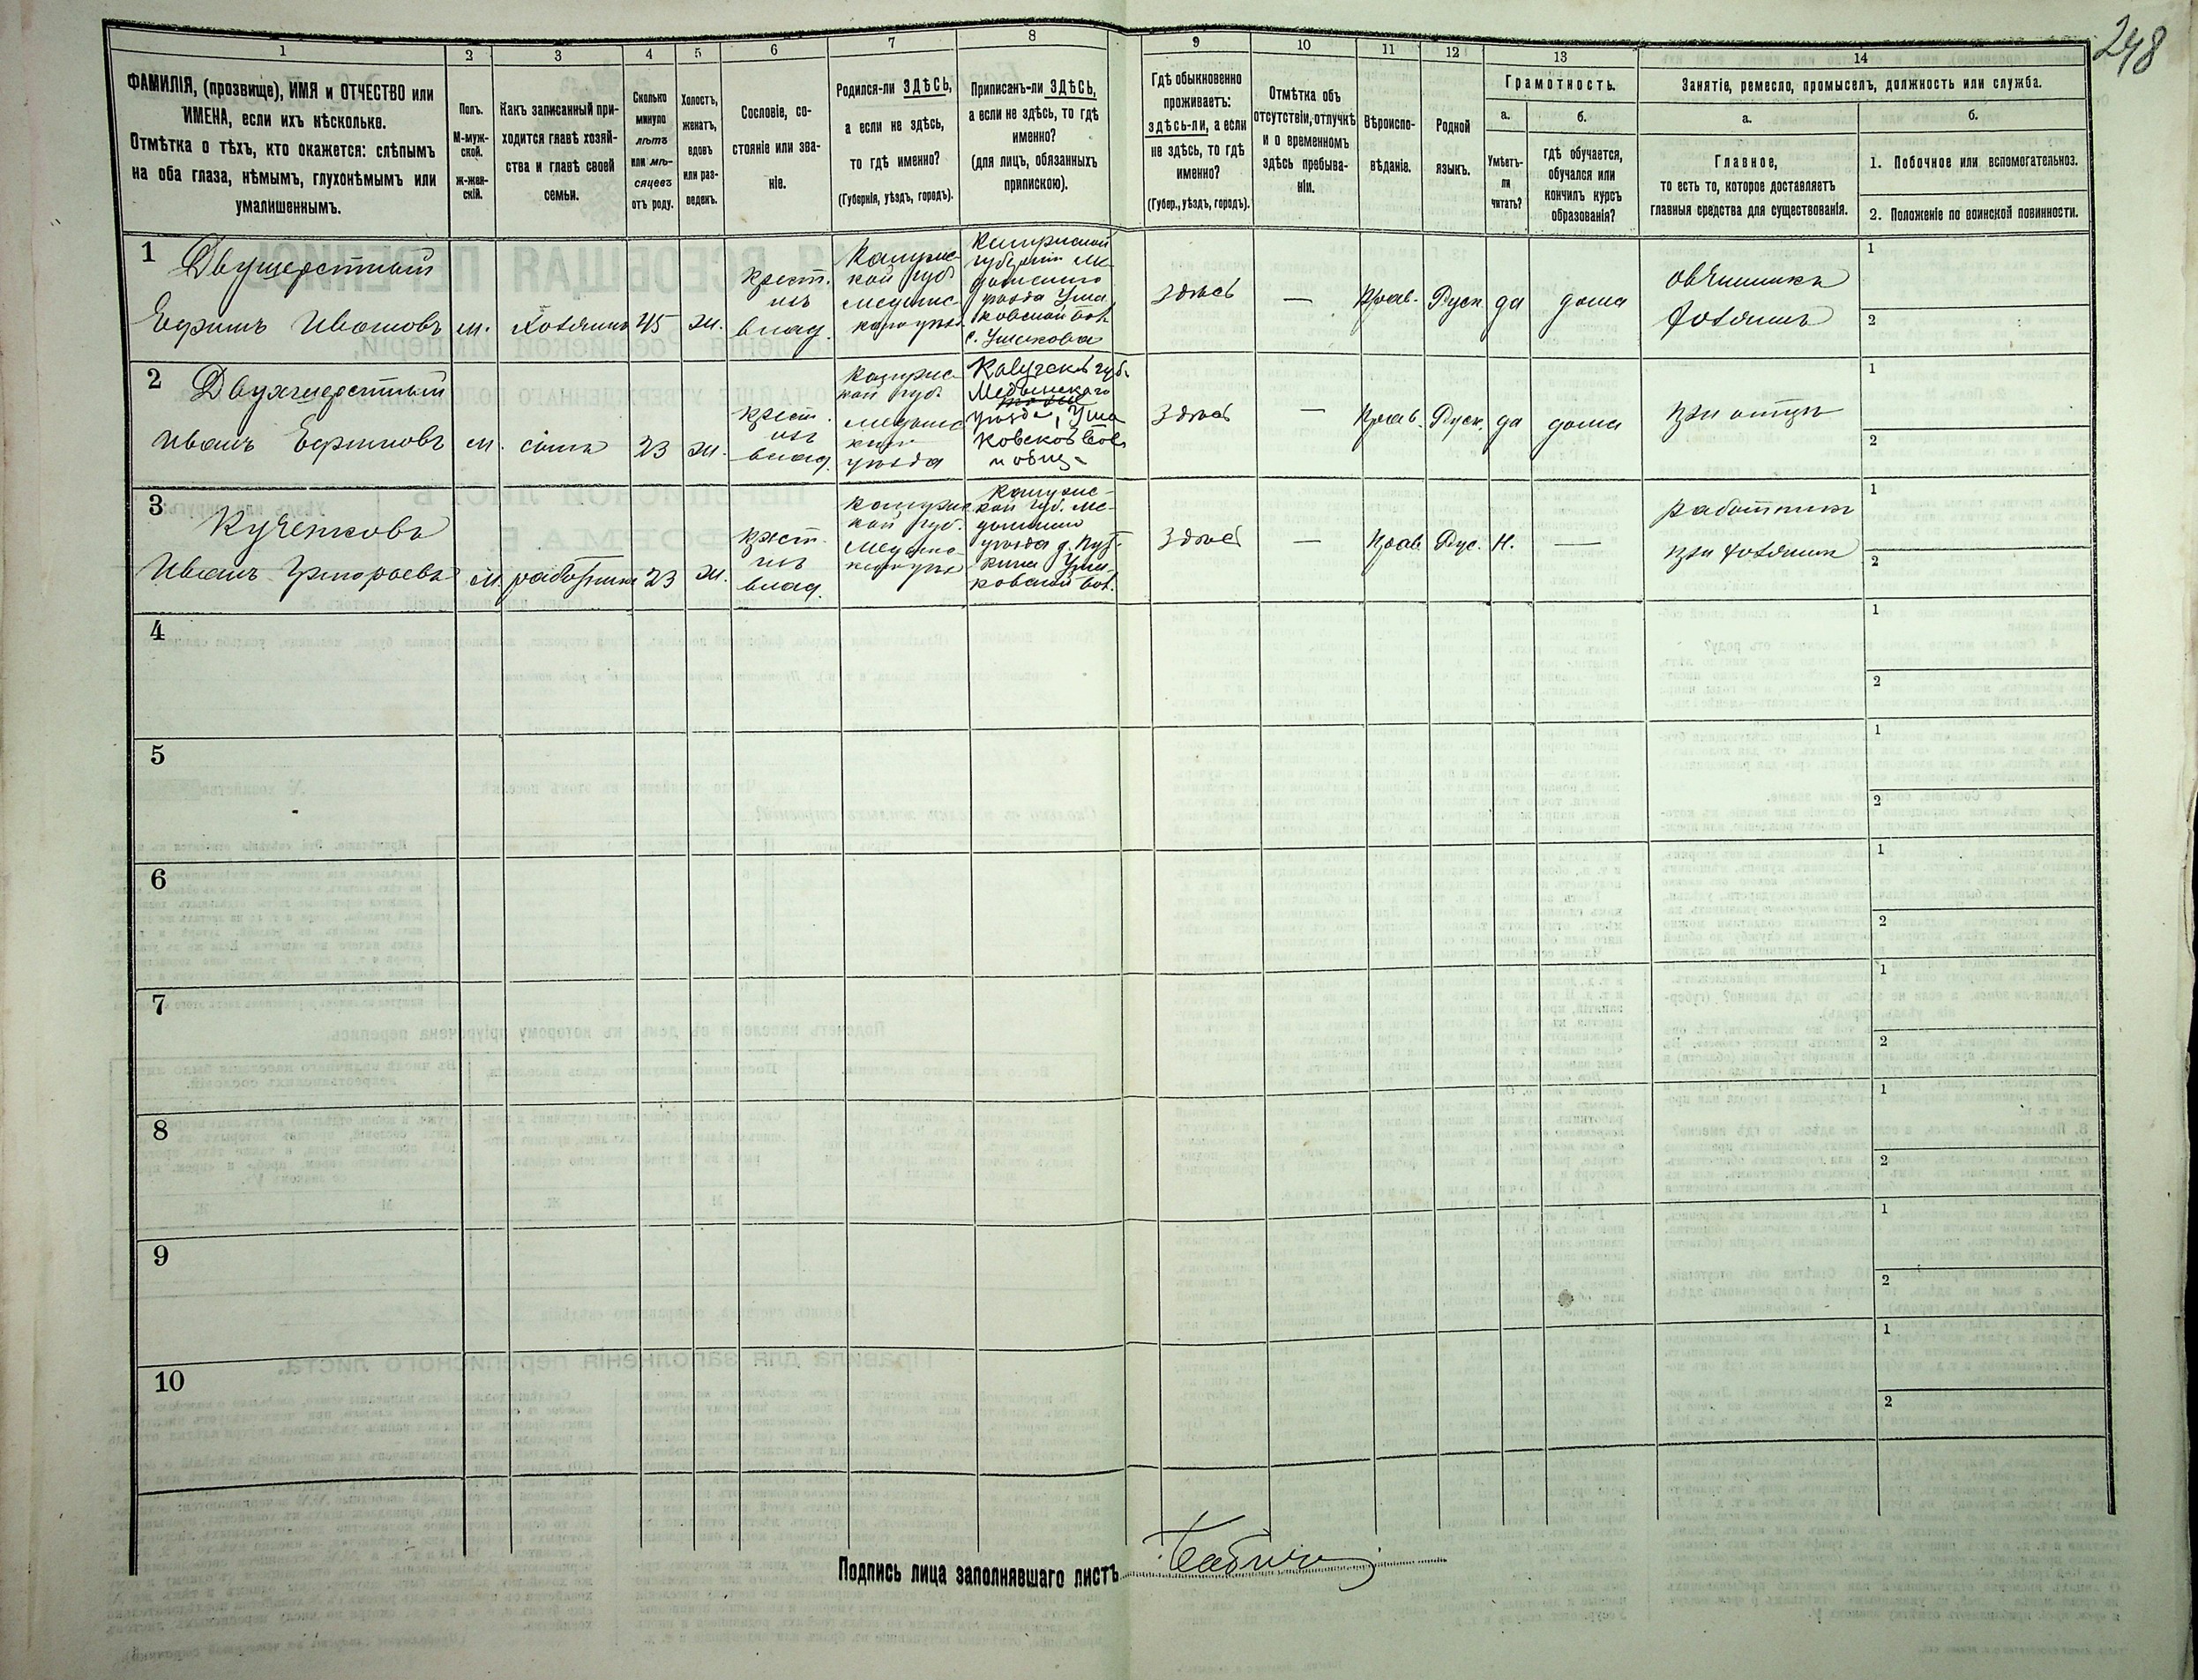 248
1
2
3
4
5
6
7
8
9
10
11
12
13
14
ФАМИЛІЯ, (прозвище), ИМЯ и ОТЧЕСТВО или
ИМЕНА, если ихъ нѣсколько.
Отмѣтка о тѣхъ, кто окажется: слѣпымъ
на оба глаза, нѣмымъ, глухонѣмымъ или
умалишеннымъ.
Полъ.
М-муж-
ской.
ж-жен-
скій.
Какъ записанный при-
ходится главѣ хозяй-
ства и главѣ своей
семьи.
Сколько
минуло
лѣтъ
или мѣ-
сяцевъ
отъ роду.
Холостъ,
женатъ,
вдовъ
или раз-
веденъ.
Сословіе, со-
стояніе или зва-
ніе.
Родился-ли ЗДѢСЬ,
а если не здѣсь,
то гдѣ именно?
(Губернія, уѣздъ, городъ).
Приписанъ-ли ЗДѢСЬ,
а если не здѣсь, то гдѣ
именно?
(для лицъ, обязанныхъ
припискою).
Гдѣ обыкновенно
проживаетъ:
здѣсь-ли, а если
не здѣсь, то гдѣ
именно?
(Губер., уѣздъ, городъ).
Отмѣтка объ
отсутствіи, отлучкѣ
и о временномъ
здѣсь пребыва-
ніи.
Вѣроиспо-
вѣданіе.
Родной
языкъ.
Грамотность.
а.
Умѣетъ-
ли
читать?
б.
гдѣ обучается,
обучался или
кончилъ курсъ
образованія?
Занятіе, ремесло, промыселъ, должность или служба.
а.
Главное,
то есть то, которое доставляетъ
главныя средства для существованія.
б.
1. Побочное или вспомогательное.
2. Положеніе по воинской повинности.
1
Двушерстный
Ефимъ Ивановъ
м.
хозяинъ
45
ж.
крест.
изъ
влад.
Калужс-
кой губ
Медынс-
каго уѣзд
Калужской
губерніи Ме-
дынскаго
уѣзда Уша
ковской вол
с. Ушакова
здѣсь
—
Прав.
Руск
да
дома
овчинникъ
хозяинъ
1
2
2
Двухшерстный
Иванъ Ефимовъ
м.
сынъ
23
ж.
крест.
изъ
влад.
Калужс-
кой губ
Медынс
каго
уѣзда
Калужской губ.
Медынскаго
уѣзда, Уша
ковской вол
и общ.
здѣсь
—
Прав.
Руск.
да
дома
при отцѣ
1
2
3
Кученковъ
Иванъ Григорьевъ
м.
работникъ
23
ж.
крест.
изъ
влад.
Калужс
кой губ.
Медынс-
каго уѣзд
Калужс-
кой губ. Ме-
дынскаго
ковской вол.
здѣсь
—
Прав
Рус.
н.
—
работникъ
при хозяинѣ
1
2
4
1
2
5
1
2
6
1
2
7
1
2
8
1
2
9
1
2
10
1
2
Подпись лица заполнявшаго листъ